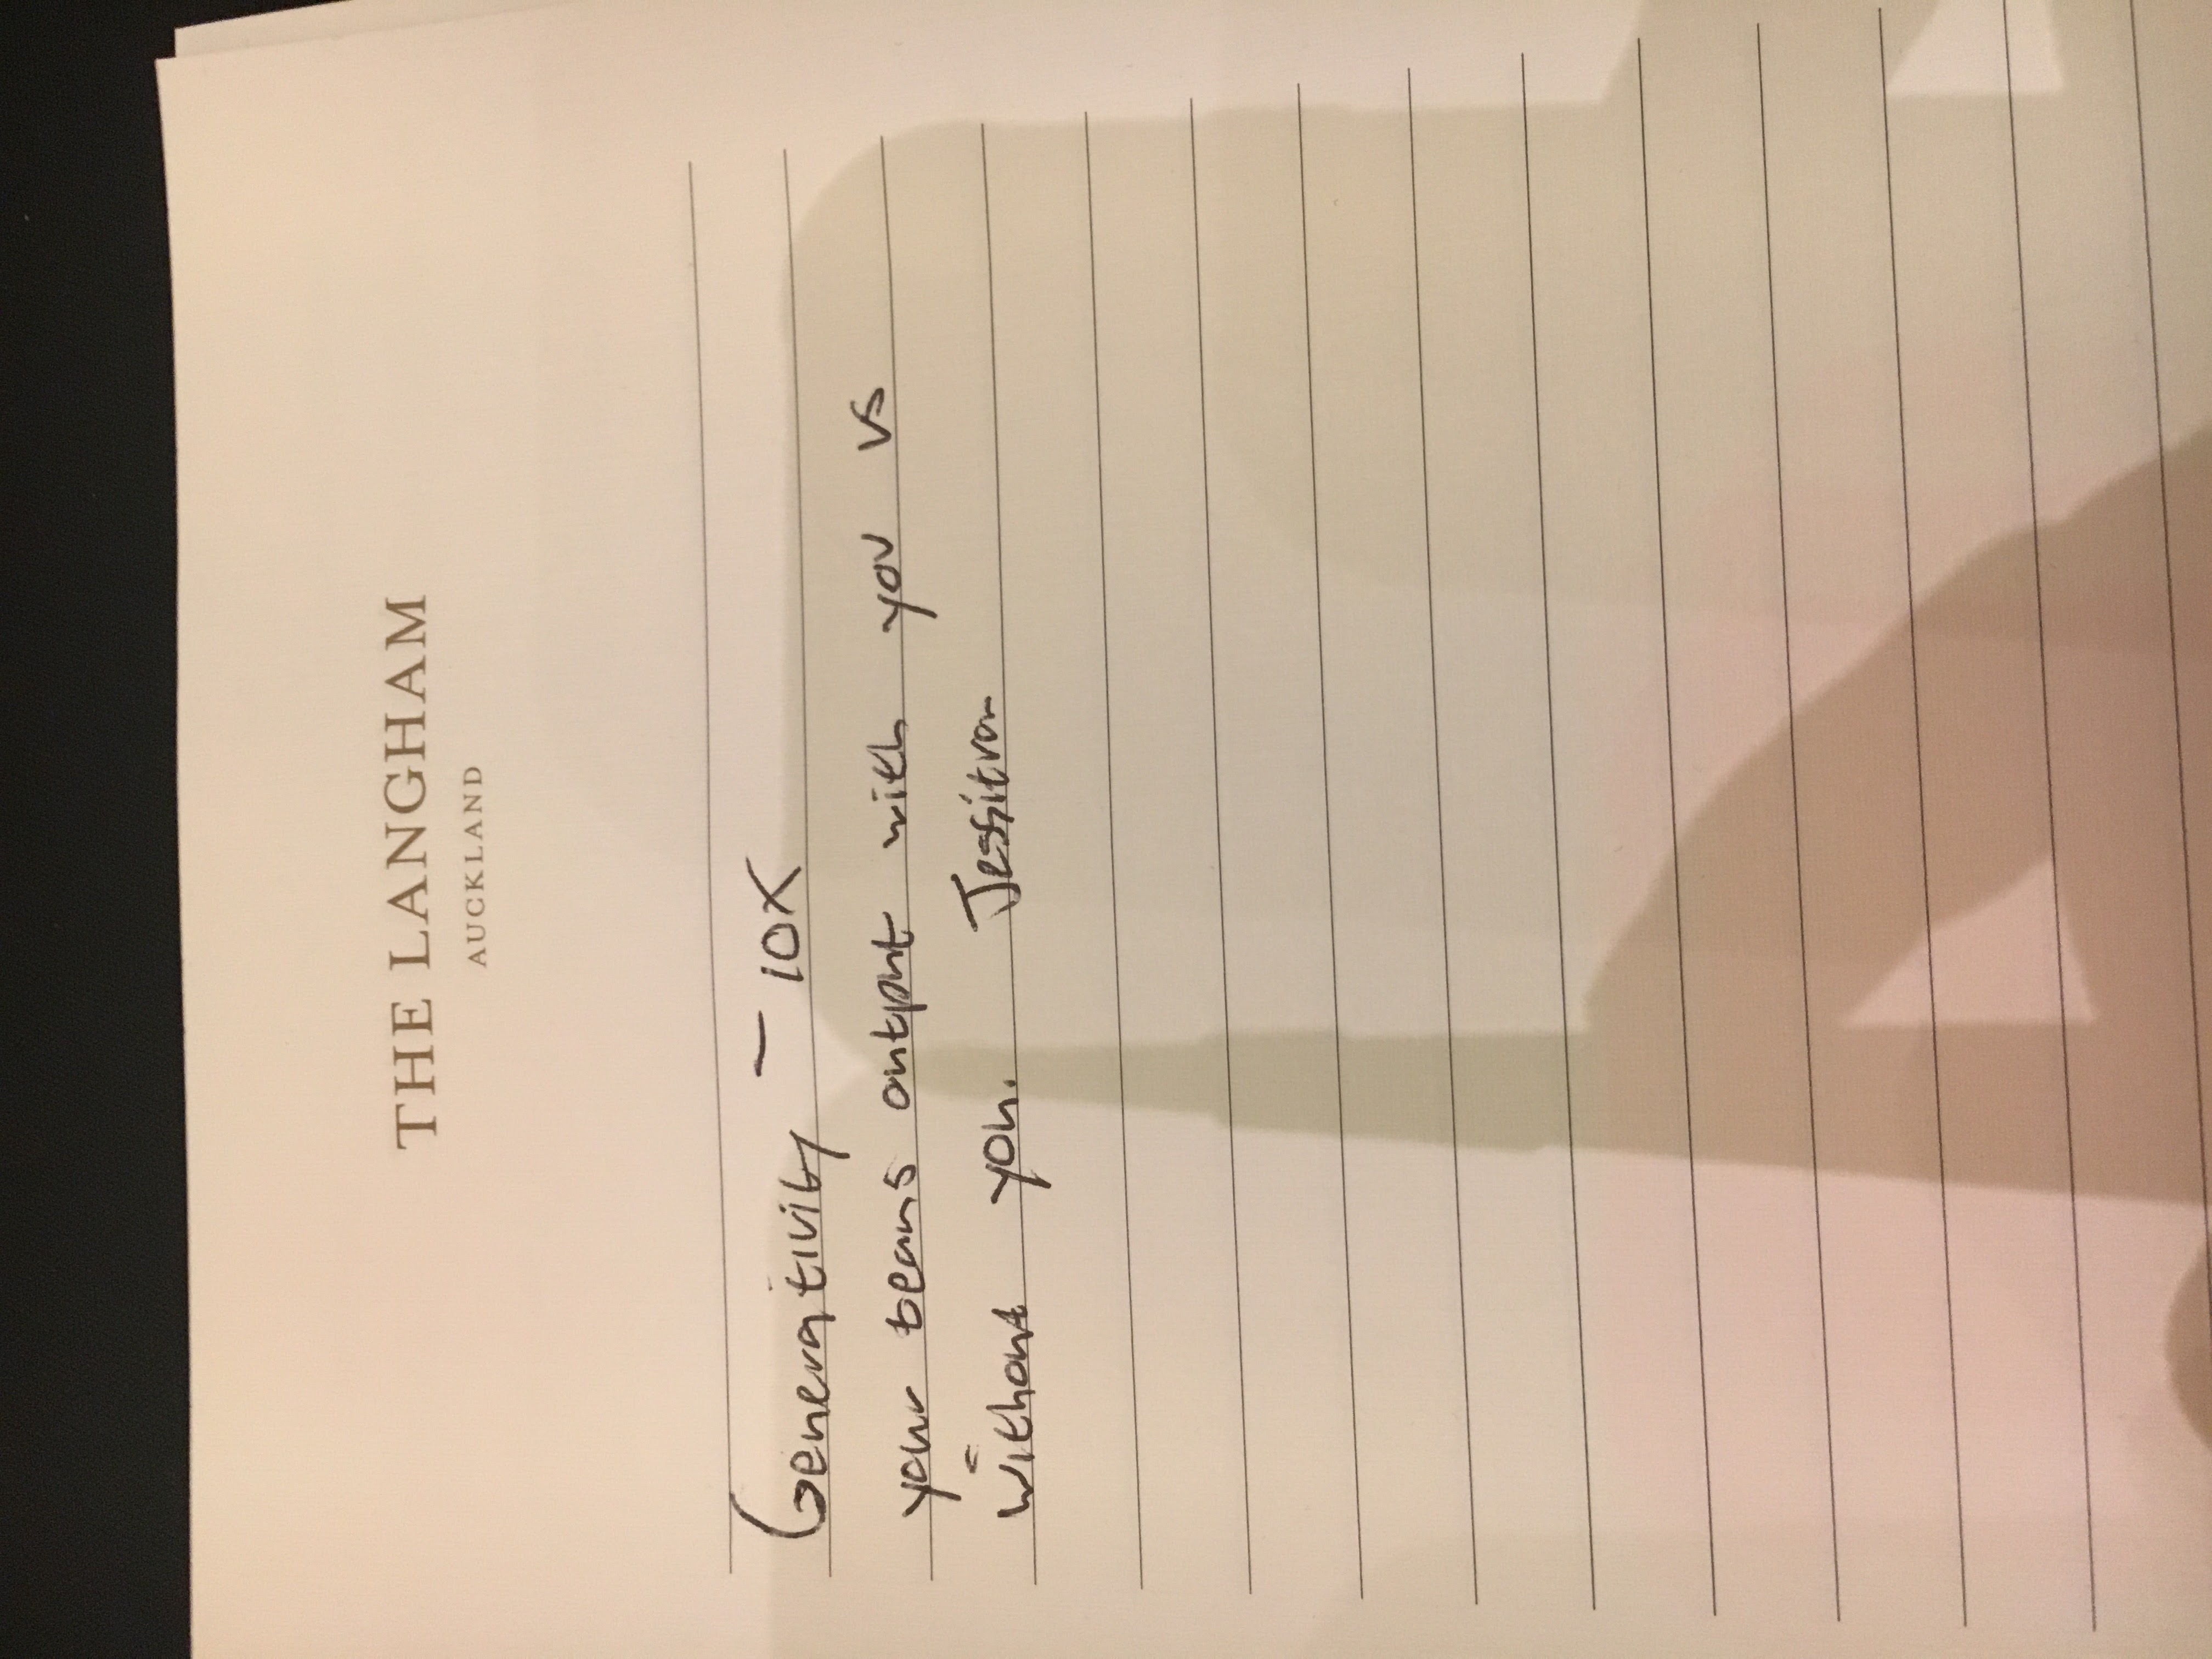 THE LANGHAM
AUCKLAND
Generativity - 10X
your teams output with you vs
without you. Jessitron